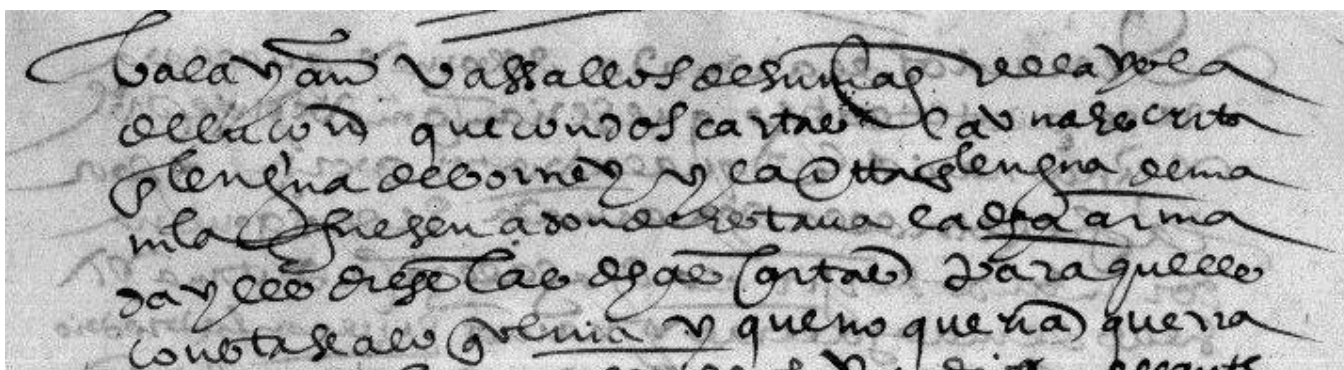 balayan vassallos de su mag de la ysla
de luçon que con dos cartas la una escrita
en lengua de borney y la otra en lengua de ma
nila fuesen a donde estava la dha arma
da y les diese las dhas cartas para que les
constase a lo que venia y que no queria guerra